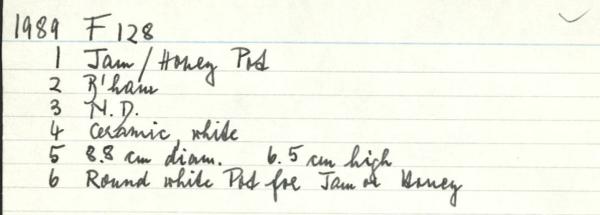 1989 F 128
1 Jam/Honey Pot
2 R'ham
3 N.D.
4 Ceramic, white
5 8.8 cm diam. 6.5 cm high
6 Round white Pot for Jam or Honey